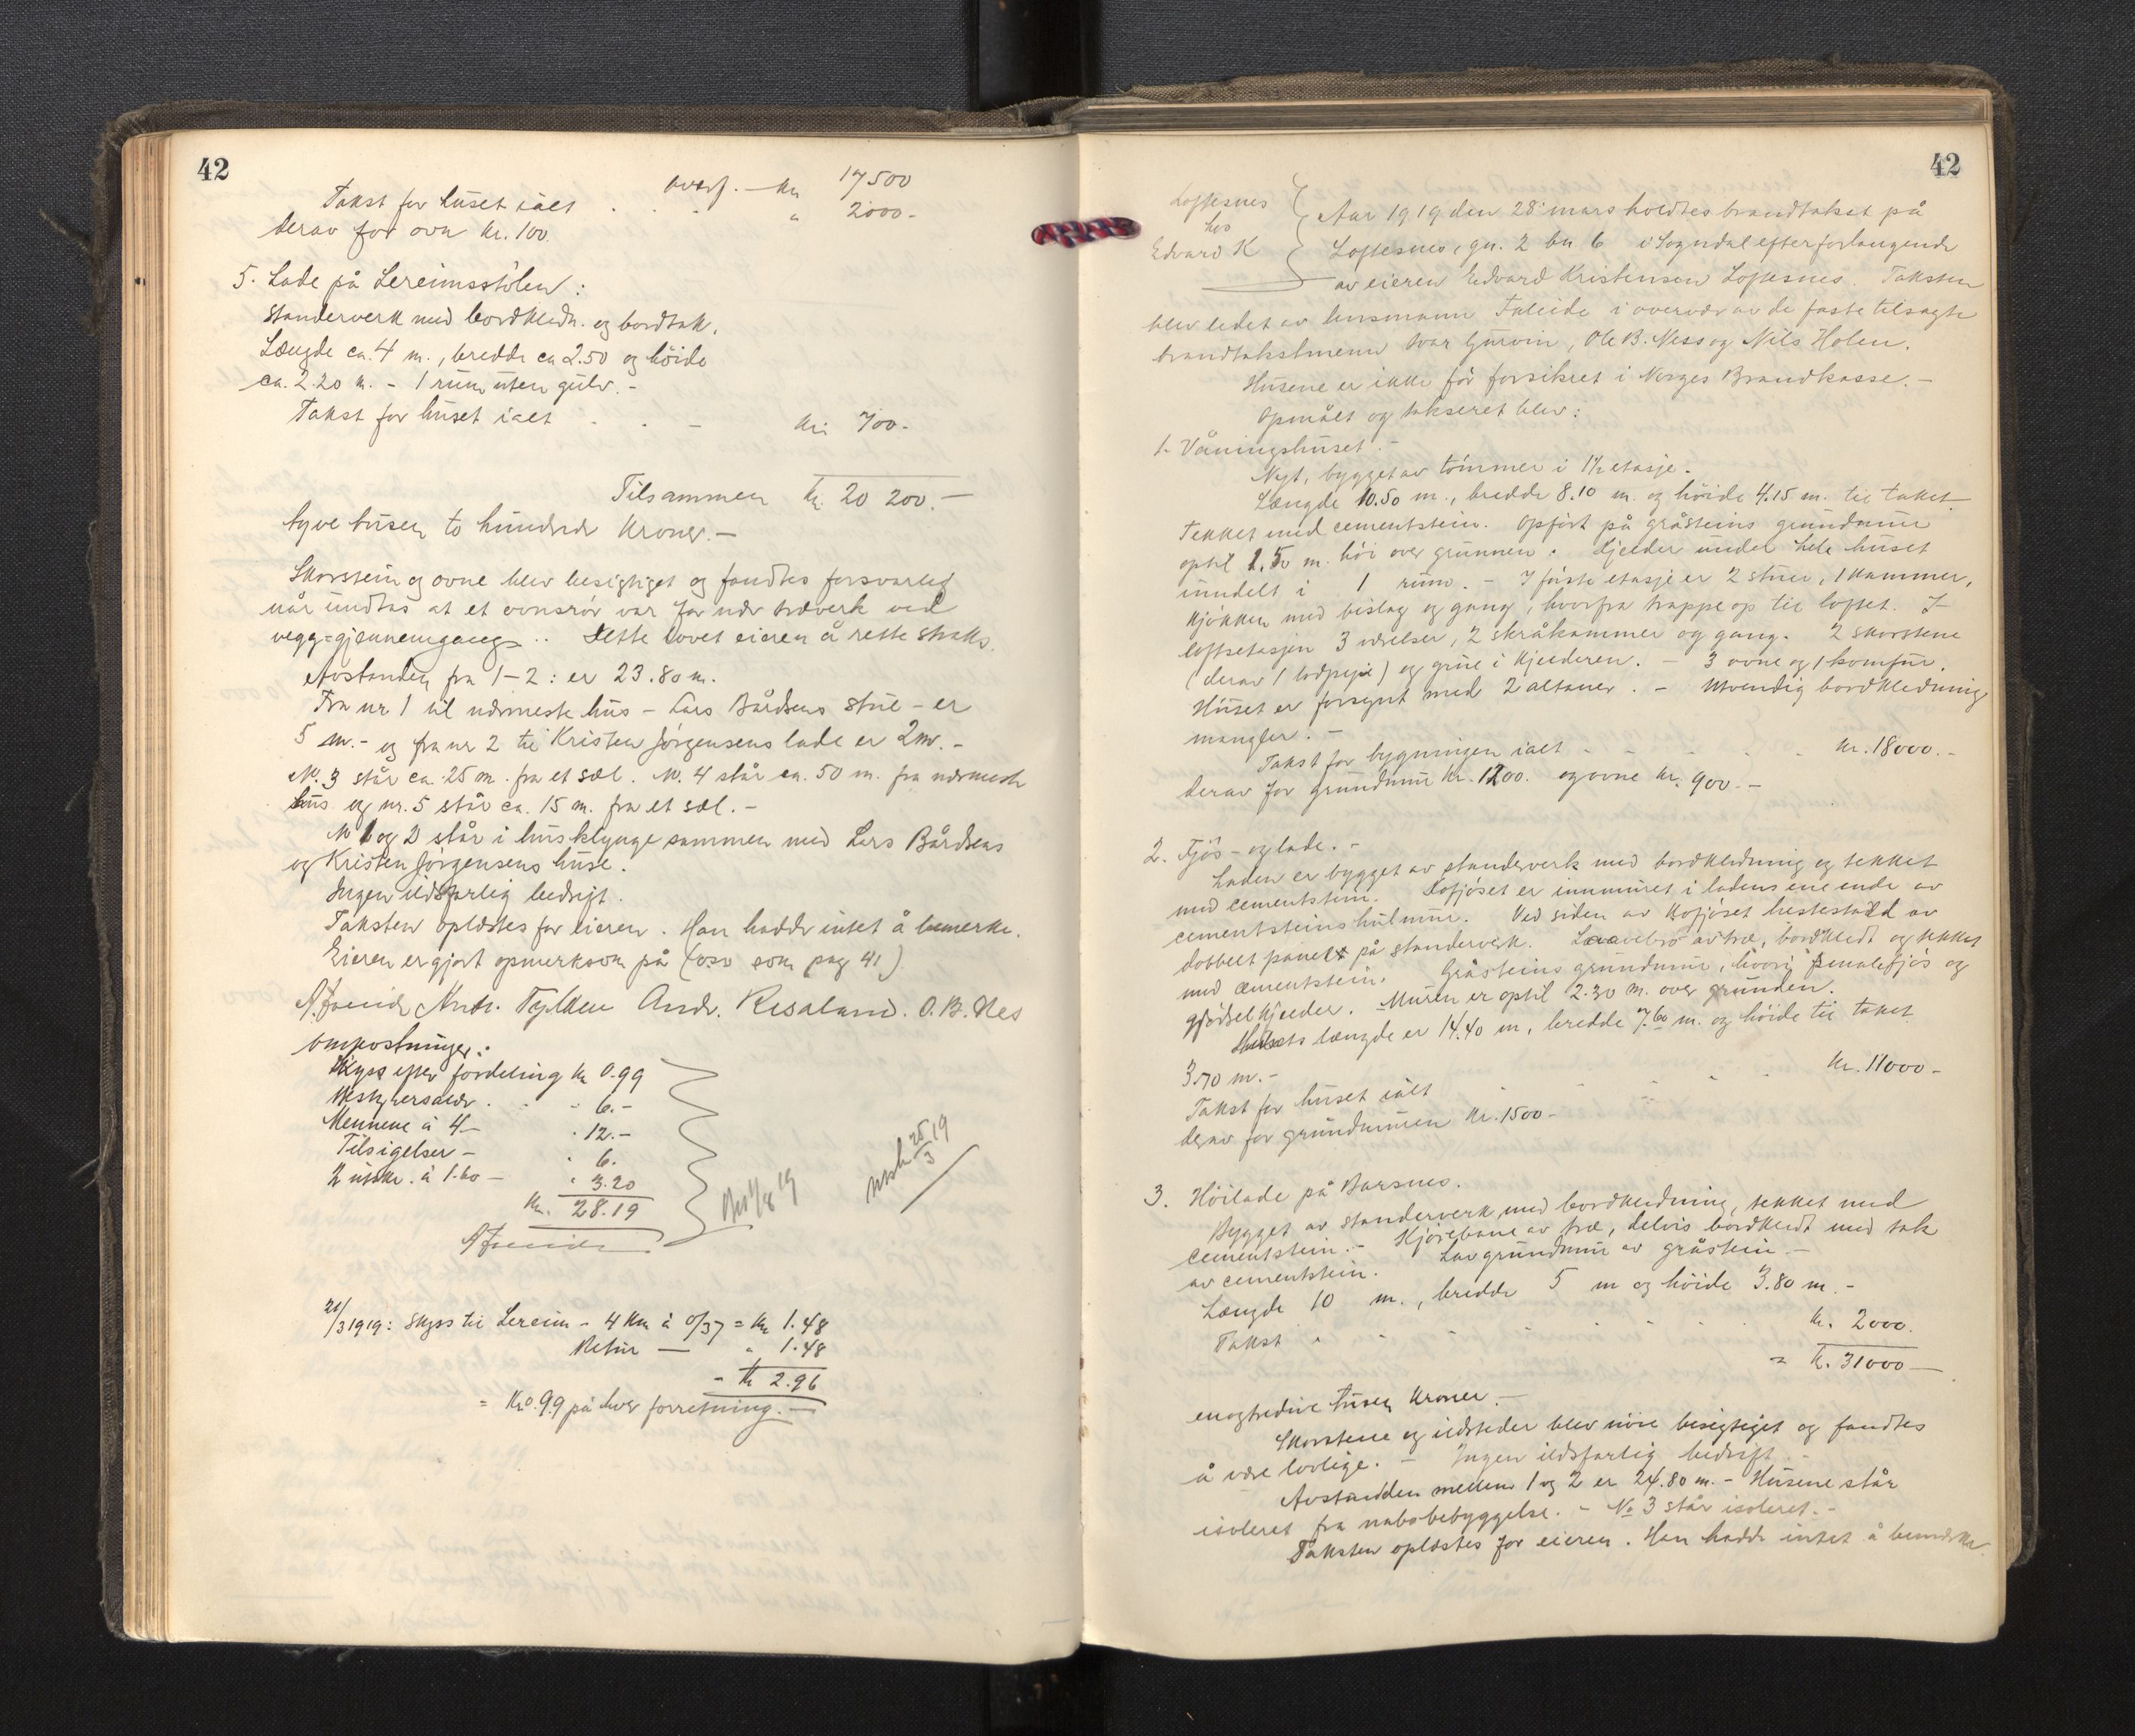 42
overf. — Kr 17500
Takst for huset ialt . . . " 2000.-
derav for ovn kr. 100.
5. Lade på Lereimsstölen:
Standerverk med bordkledn. og bordtak.
Længde ca. 4 m., bredde ca 2.50 og höide
ca. 2.20 m. - 1 rum uten gulv. -
Takst for huset ialt . . - Kr. 700.-
Tilsammen kr. 20 200.—
tyve tusen to hundrede kroner.—
Skorstein og ovne blev besigtiget og fandtes forsvarlig
når undtas at et ovnsrör var for nær træverk ved
vegg-gjennemgang. .. Dette lovet eieren å rette straks.
Avstanden fra 1-2: er 23.80 m.
Fra nr 1 til nærmeste hus - Lars Bårdsens stue - er
5 m. - og fra nr 2 til Kristen Jörgensens lade er 2 m. -
Nr. 3 står ca. 25 m. fra et sæl. Nr. 4 står ca. 50 m. fra nærmeste
hus og nr. 5 står ca. 15 m. fra et sæl. -
Nr 1 og 2 står i husklynge sammen med Lars Bårdsens
og Kristen Jörgensens huse.
Ingen ildsfarlig bedrift.
Taksten oplæstes for eieren. Han hadde intet å bemerke.
Eieren er gjort opmerksom på (osv som pag 41)
A. Faleide Andr. Tylden Andr. Risaland. O. B. Nes
Omkostninger:
Skyss efter fordeling kr 0.99
Bestyrersalær . . - 6.-
Mennene à 4- . 12.-
Tilsigelser - . 6.
2 utskr. à 1.60 - " 3.20
Kr. 28.19
A Faleide
Utsk 25/3 19
21/3 1919: Skyss til Lereim - 4 km à 0/37 = kr 1.48
Retur — " 1.48
- kr 2.96
= Kr 0.99 på hver forretning.—
42
Loftesnes
hos
Edvard K
Aar 1919 den 28. mars holdtes brandtakst på
Loftesnes, gn. 2 bn 6 i Sogndal efter forlangende
av eieren Edvard Kristensen Loftesnes. Taksten
blev ledet av lensmann Faleide i overvær av de faste tilsagte
brandtakstmenn Ivar Gurvin, Ole B. Ness og Nils Holen.
Husene er ikke för forsikret i Norges Brandkasse. -
Opmålt og takseret blev:
1. Våningshuset. -
Nyt, bygget av tömmer i 1½ etasje.
Længde 10.50 m., bredde 8.10 m. og höide 4.15 m. til taket.
Tekket med cementstein. Opfört på gråsteins grundmur
optil 1.50 m. höi over grunnen. Kjelder under hele huset
inndelt i 1 rum. - I förste etasje er 2 stuer, 1 kammer,
kjökken med bislag og gang, hvorfra trappe op til loftet. I
loftsetasjen 3 værelser, 2 skråkammer og gang. 2 skorstene
(derav 1 lodpipe) og grue i kjelderen. - 3 ovne og 1 komfur.
Huset er forsynt med 2 altaner. - Utvendig bordkledning
mangler. -
Takst for bygningen ialt - - - - - kr. 18000.-
derav for grundmur kr. 1200. og ovne kr. 900.-
2. Fjös- og lade. -
Laden er bygget av standerverk med bordkledning og tekket
med cementstein. Kofjöset er innmuret i ladens ene ende av
cementsteins hulmur. Ved siden av Kofjöset hestestald av
dobbelt panelt på standerverk. Laavebro av træ, bordkledt og tekket
med cementstein. Gråsteins grundmur, hvori smalefjös og
gjödselkjelder. Muren er optil 2.30 m. over grunden.
Husets længde er 14.40 m, bredde 7.60 m. og höide til taket
3.70 m. -
Takst for huset ialt - - - . . kr. 11000 -
derav for grundmuren kr. 1500 -
3. Höilade på Barsnes.
Bygget av standerverk med bordkledning, tekket med
cementstein. - Kjörebane av træ, delvis bordkledt med tak
av cementstein. Lav grundmur av gråstein. -
Længde 10 m., bredde 5 m og höide 3.80 m. -
Takst . . . . . kr. 2000.
= kr. 31000—
enogtredive tusen kroner.—
Skorstene og ildsteder blev nöie besigtiget og fandtes
å være lovlige. - Ingen ildsfarlig bedrift. -
Avstanden mellem 1 og 2 er 24.80 m. - Husene står
isoleret fra nabobebyggelse. - No 3 står isoleret. -
Taksten oplæstes for eieren. Han hadde intet å bemerke.